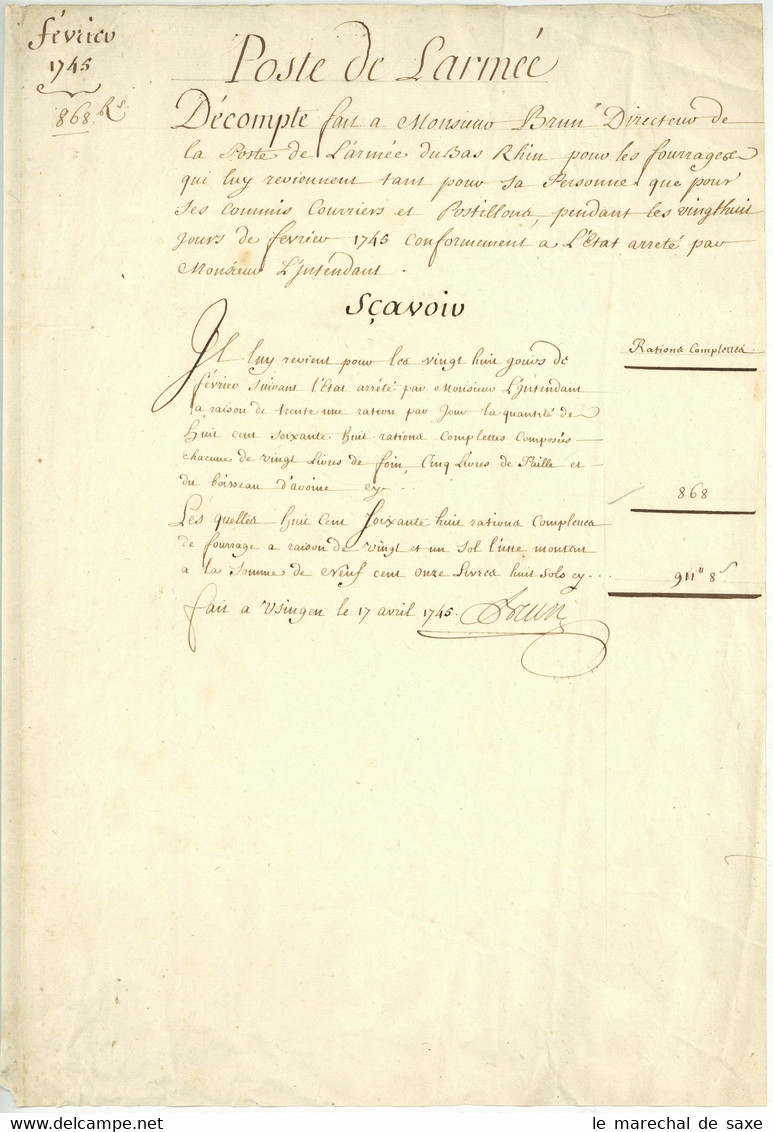 février
1745
868 Rs
Poste de L'armée
Décompte fait a Monsieur Brun Directeur de
la Poste de L'armée du Bas Rhin pour les fourrages
qui luy reviennent tant pour sa Personne que pour
ses commis Courriers et Postillons, pendant les vingthuit
jours de février 1745 conformement a L'Etat arreté par
Monsieur L'Jntendant.
Sçavoir
Rations Complettes
Jl luy revient pour les vingt huit jours de
février suivant l'Etat arrété par Monsieur L'Jntendant
a raison de trente une ration par Jour la quantité de
Huit cent soixante huit rations complettes composés
chacune de vingt Livres de foin, Cinq Livres de Paille et
du boisseau d'avoine cy - 868
Les quelles Huit Cent Soixante huit rations complettes
de fourrage a raison de vingt et un sol l'une montent
a la somme de Neuf cent onze Livres huit sols cy - 911tt 8s
fait a Usingen le 17 avril 1745. Brun
le marechal de saxe